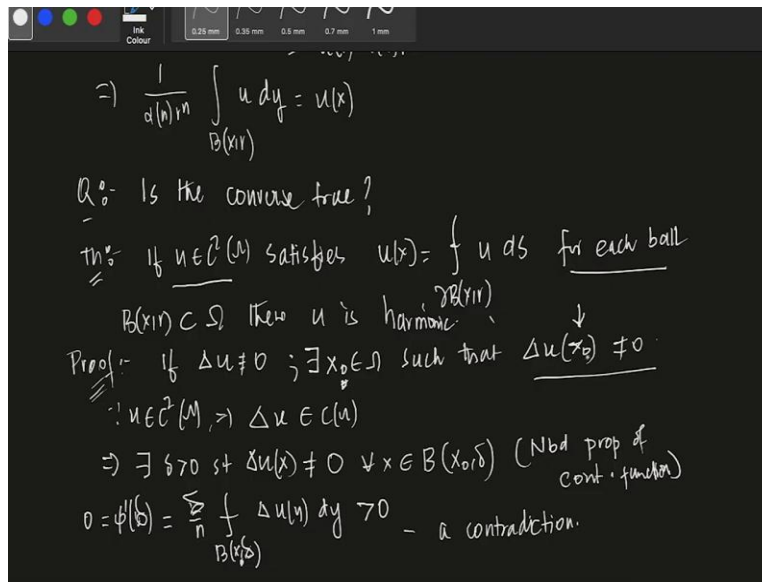 Ink
Colour
0.25 mm 0.35 mm 0.5 mm 0.7 mm 1 mm
⇒ 1/(α(n) rⁿ) ∫_{B(x,r)} u dy = u(x)
Q:- Is the converse true?
Th:- If u ∈ C²(Ω) satisfies u(x) = ⨍_{∂B(x,r)} u ds for each ball
B(x,r) ⊂ Ω then u is harmonic.
Proof:- If Δu ≢ 0 ; ∃ x₀ ∈ Ω such that Δu(x₀) ≠ 0
∵ u ∈ C²(Ω) ⇒ Δu ∈ C(Ω)
⇒ ∃ δ>0 st Δu(x) ≠ 0 ∀ x ∈ B(x₀,δ) (Nbd prop of
cont. function)
0 = φ'(δ) = δ/n ⨍_{B(x,δ)} Δu(y) dy > 0 – a contradiction.